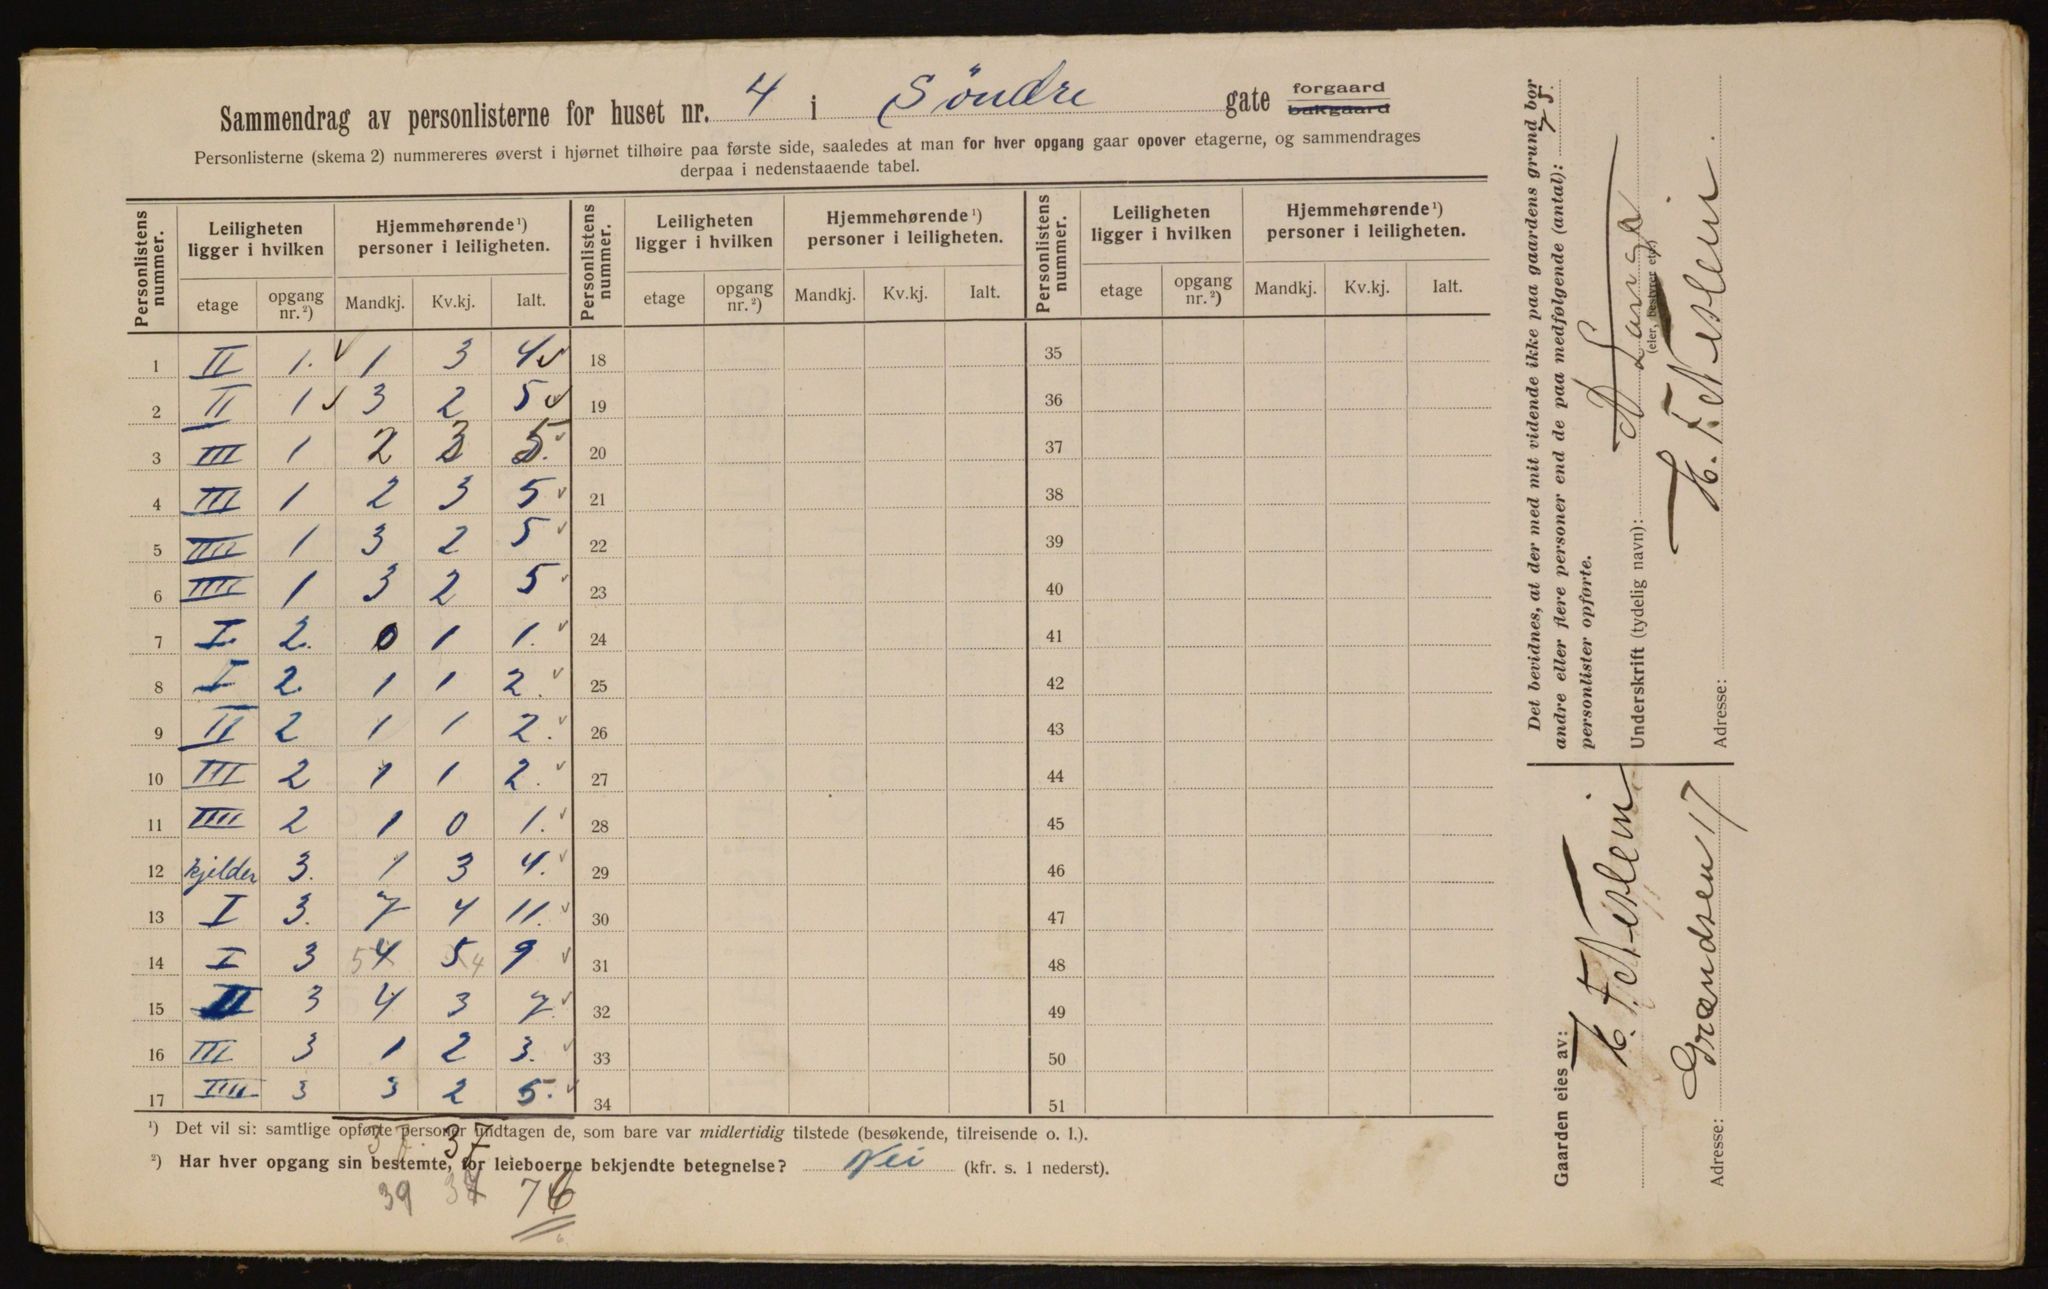 Sammendrag av personlisterne for huset nr. 4 i Söndre gate forgaard
bakgaard
Personlisterne (skema 2) nummereres øverst i hjørnet tilhøire paa første side, saaledes at man for hver opgang gaar opover etagerne, og sammendrages
derpaa i nedenstaaende tabel.
Personlistens nummer. Leiligheten ligger i hvilken Hjemmehørende¹) personer i leiligheten. Personlistens nummer. Leiligheten ligger i hvilken Hjemmehørende¹) personer i leiligheten. Personlistens nummer. Leiligheten ligger i hvilken Hjemmehørende¹) personer i leiligheten.
etage opgang nr.²) Mandkj. Kv.kj. Ialt. etage opgang nr.²) Mandkj. Kv.kj. Ialt. etage opgang nr.²) Mandkj. Kv.kj. Ialt.
1 II 1. 1 3 4 18 35
2 II 1 3 2 5 19 36
3 III 1 2 3 5. 20 37
4 III 1 2 3 5 21 38
5 IIII 1 3 2 5 22 39
6 IIII 1 3 2 5 23 40
7 I. 2. 0 1 1. 24 41
8 I 2. 1 1 2. 25 42
9 II 2 1 1 2. 26 43
10 III 2 1 1 2. 27 44
11 IIII 2 1 0 1. 28 45
12 kjelder 3. 1 3 4. 29 46
13 I 3. 7 4 11. 30 47
14 I 3 5 4 5 4 9 31 48
15 II 3 4 3 7. 32 49
16 III 3 1 2 3. 33 50
17 IIII 3 3 2 5. 34 51
¹) Det vil si: samtlige opførte personer undtagen de, som bare var midlertidig tilstede (besøkende, tilreisende o. l.).
37
²) Har hver opgang sin bestemte, for leieboerne bekjendte betegnelse? Nei (kfr. s. 1 nederst).
39 76
Det bevidnes, at der med mit vidende ikke paa gaardens grund bor
andre eller flere personer end de paa medfølgende (antal): 75.
personlister opførte.
Underskrift (tydelig navn):
(eier, bestyrer etc.)
H. F. Neslein.
Adresse:
Gaarden eies av:
H. F. Neslein
Adresse: Grændsen 17